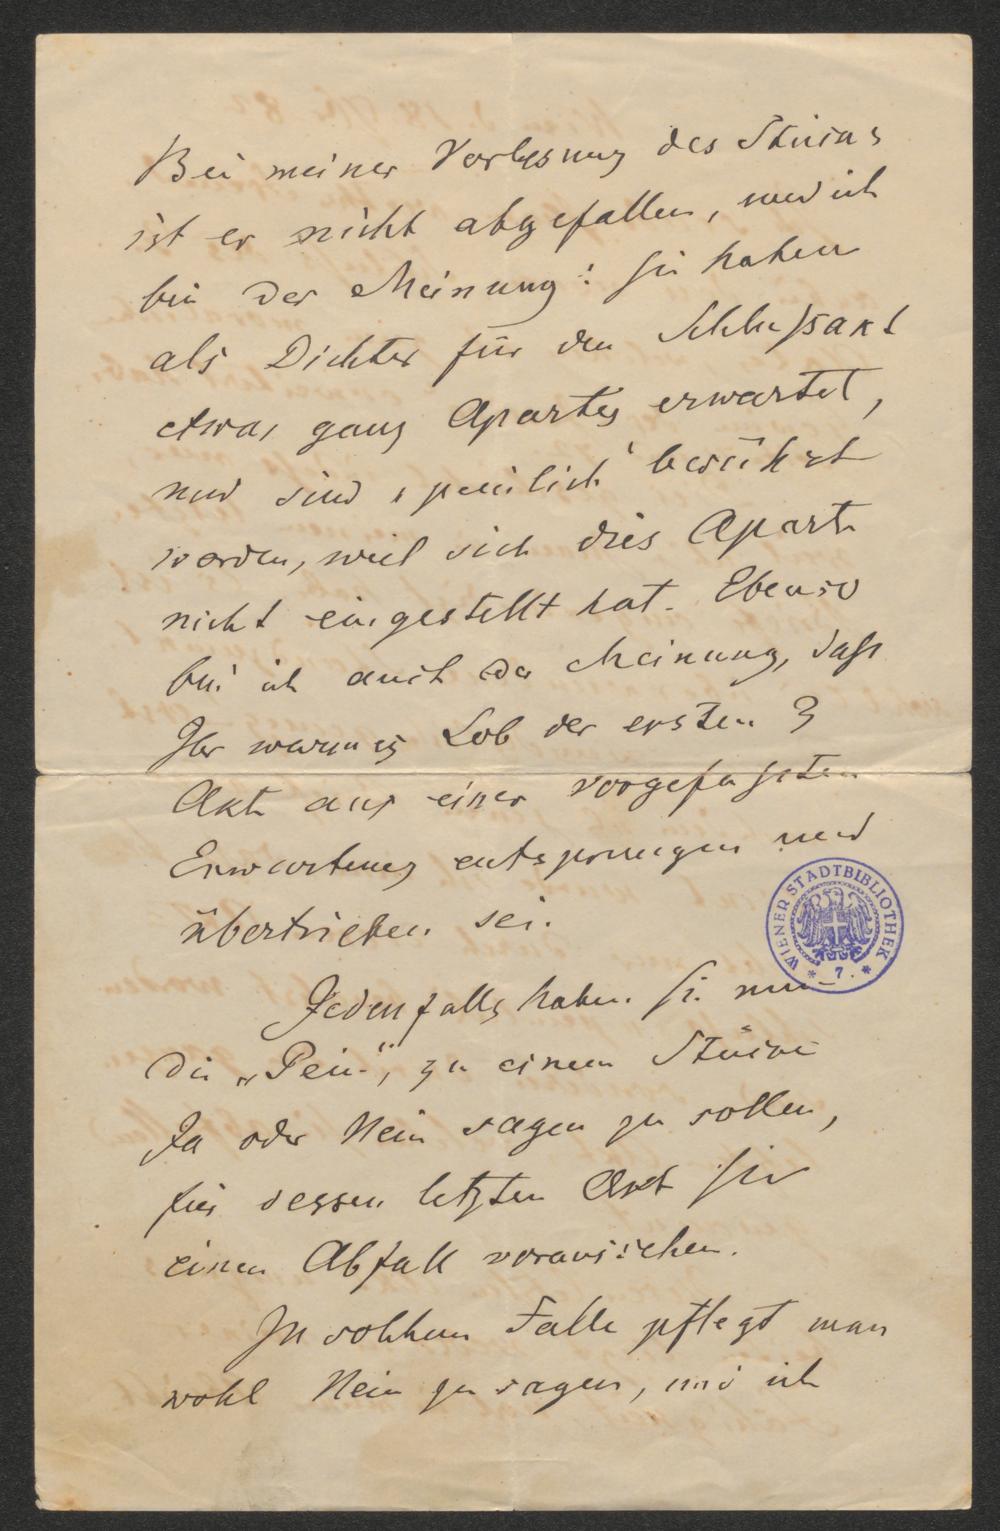 Bei meiner Vorlesung des Stückes
ist er nicht abgefallen, und ich
bin der Meinung: Sie haben
als Dichter für den Schlußakt
etwas ganz Apartes erwartet,
und sind „peinlich“ berührt
worden, weil sich dies Aparte
nicht eingestellt hat. Ebenso
bin ich auch der Meinung, daß
Ihr warmes Lob der ersten 3
Akte aus einer vorgefaßten
Erwartung entsprungen und
übertrieben sei.
Jedenfalls haben Sie nun
die „Pein“, zu einem Stücke
Ja oder Nein sagen zu sollen,
für dessen letzten Akt Sie
einen Abfall voraussehen.
In solchem Falle pflegt man
wohl Nein zu sagen, und ich
WIENER STADTBIBLIOTHEK
* 7. *